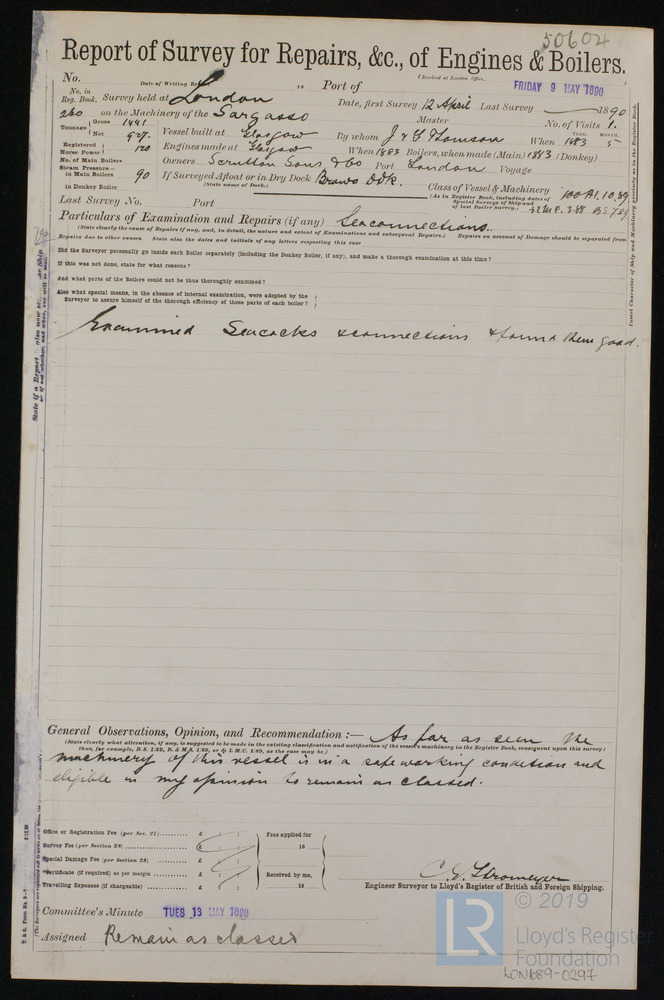 50604
Report of Survey for Repairs, &c., of Engines & Boilers.
(Received at London Office,
No. Date of Writing Report 18 Port of FRIDAY 9 MAY 1890
No. in Reg. Book. Survey held at London Date, first Survey 12 April Last Survey 1890
260 on the Machinery of the Sargasso Master No. of Visits 1.
Tonnage Gross 1441 Net 927. Vessel built at Glasgow By whom J & G Thomson When YEAR. 1883 MONTH. 5
Registered Horse Power 120 Engines made at Glasgow When 1883 Boilers, when made (Main) 1883 (Donkey)
No. of Main Boilers Owners Scrutton Sons & Co Port London Voyage
Steam Pressure— in Main Boilers 90 If Surveyed Afloat or in Dry Dock
(State name of Dock.)
in Donkey Boiler Class of Vessel & Machinery 100 A1. 10.89
(As in Register Book, including dates of Special Surveys of Ship and of last Boiler Survey.)
Last Survey No. Port
Particulars of Examination and Repairs (if any) Seaconnections.
(State clearly the cause of Repairs if any, and, in detail, the nature and extent of Examinations and subsequent Repairs.) Repairs on account of Damage should be separated from
Repairs due to other causes. State also the dates and initials of any letters respecting this case
Did the Surveyor personally go inside each Boiler separately (including the Donkey Boiler, if any), and make a thorough examination at this time?
If this was not done, state for what reasons?
And what parts of the Boilers could not be thus thoroughly examined?
Also what special means, in the absence of internal examination, were adopted by the
Surveyor to assure himself of the thorough efficiency of those parts of each boiler?
Examined Seacocks & connections & found them good.
Insert Character of Ship and Machinery precisely as in the Register Book.
General Observations, Opinion, and Recommendation :— As far as seen the
(State clearly what alteration, if any, is suggested to be made in the existing classification and notification of the vessel's machinery in the Register Book, consequent upon this survey;
thus, for example, B.S. 1/89, B. & M.S. 1/89, or L.M.C. 1/89, as the case may be.)
machinery of this vessel is in a safe working condition and
eligible in my opinion to remain as classed.
Office or Registration Fee (per Sec. 27) £ : : Fees applied for
Survey Fee (per Section 28) £ : : 18
Special Damage Fee (per Section 28) £ : :
Certificate (if required) as per margin £ : : Received by me,
Travelling Expenses (if chargeable) £ : : 18
C. E. Stromeyer
Engineer Surveyor to Lloyd's Register of British and Foreign Shipping.
Committee's Minute TUES 13 MAY 1890
Assigned Remain as classed
© 2019
LR
Lloyd's Register
Foundation
LON689-0297